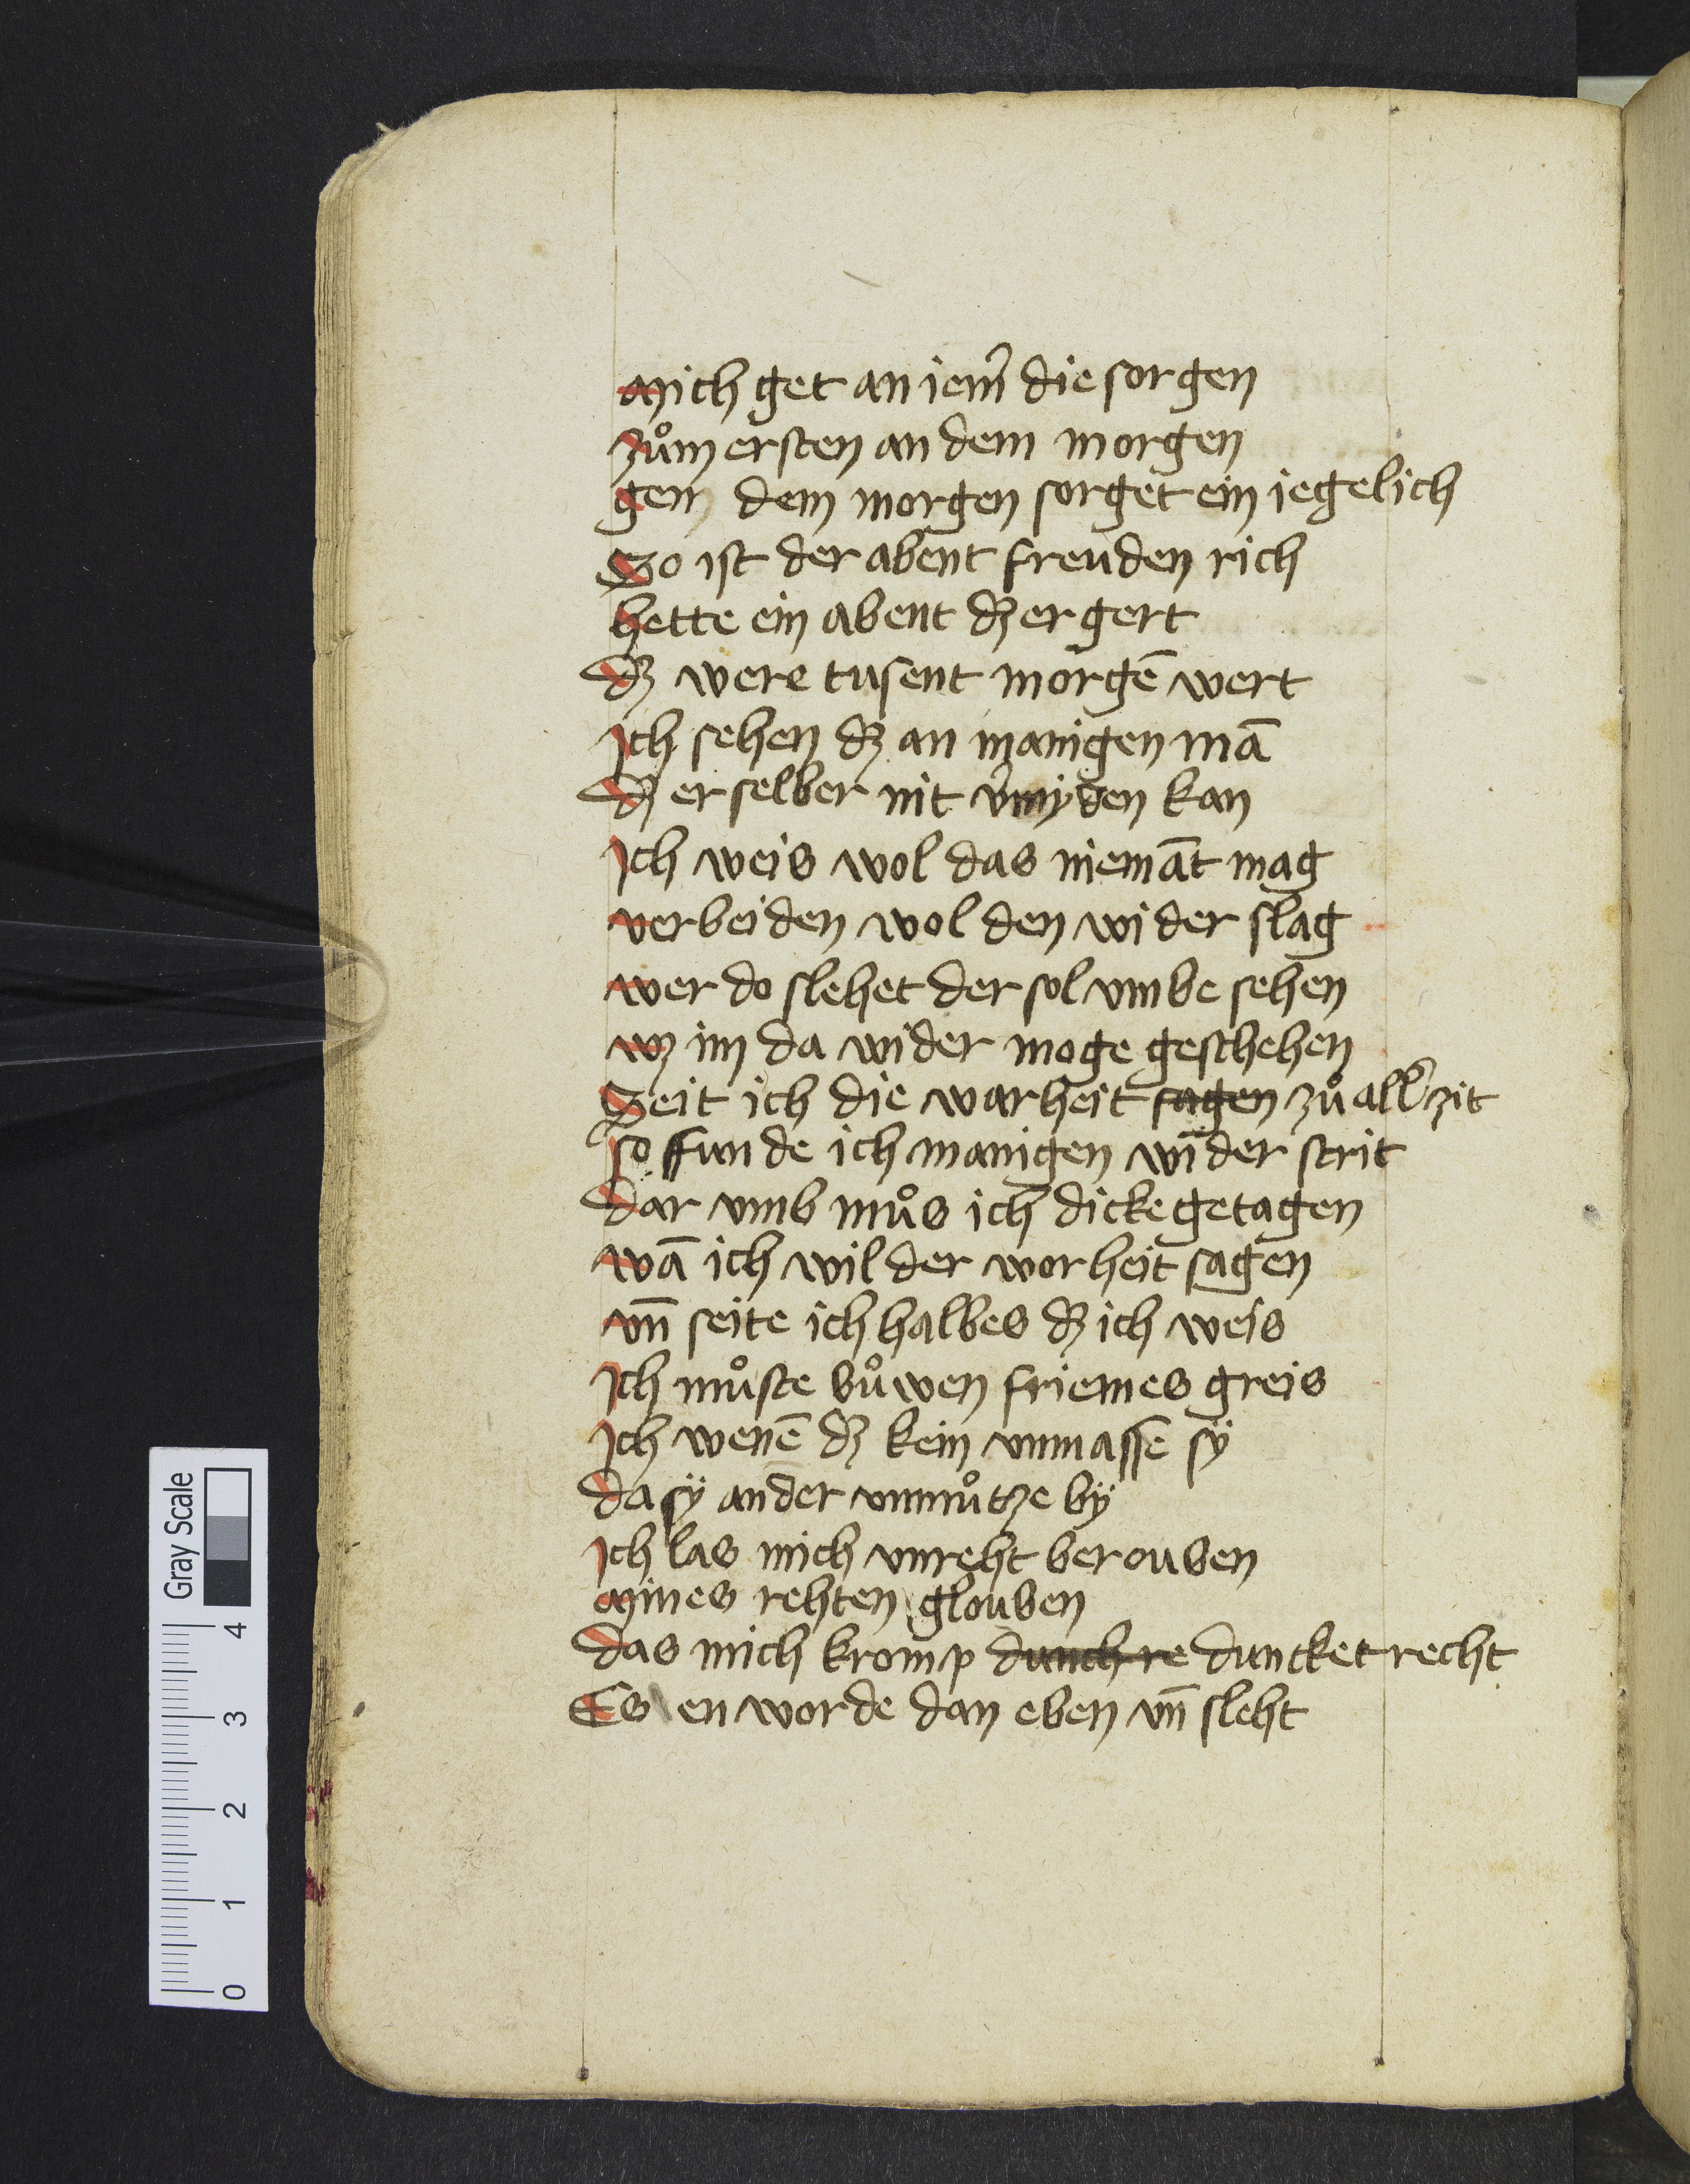 Mich get an iem̃ die sorgen
Zům ersten an dem morgen
gen dem morgen sorget ein iegelich
So ist der abent freuden rich
hette ein abent dʒ er gert
dʒ were tusent morgē wert
Ich sehen dʒ an manigen mā
dʒ er selber nit v̉myden kan
Ich weis wol das niemāt mag
verbeiden wol den wider slag
wer do slehet der sol vmbe sehen
wʒ im da wider moge geschehen
Seit ich die warheit sagen zů all̉ zit
so funde ich manigen wider strit
dar vmb můs ich dicke getagen
wā ich wil der worheit sagen
vn̄ seite ich halbes dʒ ich weis
Ich můste bůwen friemes greis
Ich wenē dʒ kein vnmasse sÿ
da sÿ ander vnnůtze bÿ
Ich las mich vnreht berouben
Mines rehten glouben
das mich kromp dunch re duncket recht
Es en worde dan eben vn̄ sleht
Gray Scale
4
3
2
1
0